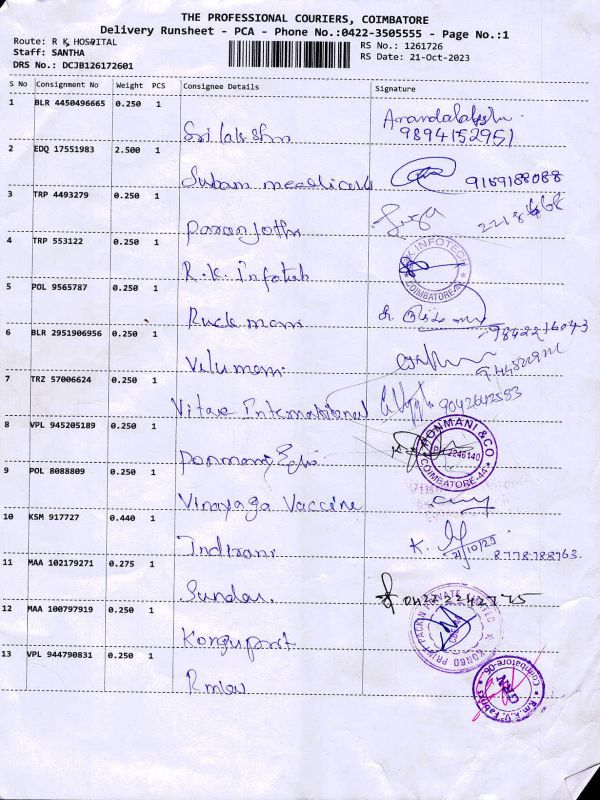 THE PROFESSIONAL COURIERS, COIMBATORE
Delivery Runsheet - PCA - Phone No.:0422-3505555 - Page No.:1
Route: R K HOSPITAL
Staff: SANTHA
DRS No.: DCJB126172601
RS No.: 1261726
RS Date: 21-Oct-2023
S No Consignment No Weight PCS Consignee Details Signature
1 BLR 4450496665 0.250 1
Srilakshm
9894152951
2 EDQ 17551983 2.500 1
Subam medicals 9159188088
3 TRP 4493279 0.250 1
Paranjothi
4 TRP 553122 0.250 1
R.K. Infotech
K INFOTECH
COIMBATORE-44
5 POL 9565787 0.250 1
Ruckmani
6 BLR 2951906956 0.250 1
Velumani
7 TRZ 57006624 0.250 1
Vitae International 9042642593
8 VPL 945205189 0.250 1
Ponmani & Co
PONMANI & CO
COIMBATORE-44
9 POL 8088809 0.250 1
Vinayaga Vaccine
10 KSM 917727 0.440 1
Indirani K.
21/10/23
8778788963
11 MAA 102179271 0.275 1
Sundar. 0422 2242775
12 MAA 100797919 0.250 1
Kongu print
KONGO PRINT PACK IN PRIVATE LIMITED
13 VPL 944790831 0.250 1
Coimbatore-06